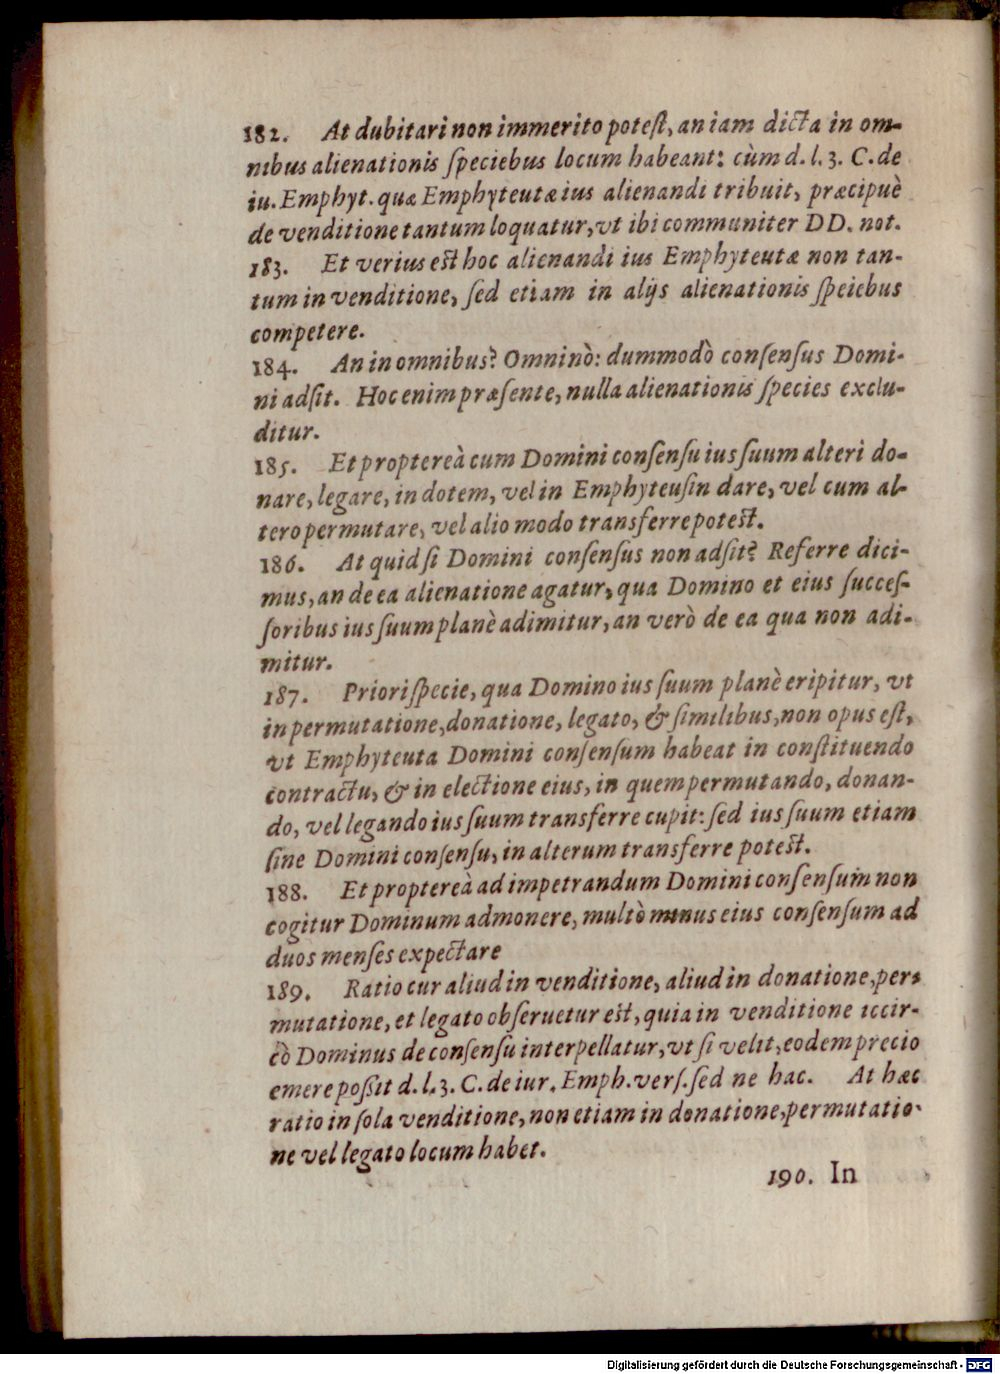 182. At dubitari non immerito poteſt, an iam dicta in om-
nibus alienationis ſpeciebus locum habeant: cùm d. l. 3. C. de
iu. Emphyt. quæ Emphyteutæ ius alienandi tribuit, præcipuè
de venditione tantum loquatur, vt ibi communiter DD. not.
183. Et verius est hoc alienandi ius Emphyteutæ non tan-
tum in venditione, ſed etiam in alijs alienationis ſpeiebus
competere.
184. An in omnibus? Omninò: dummodò conſenſus Domi-
ni adſit. Hoc enim præſente, nulla alienationis ſpecies exclu-
ditur.
185. Et propterea̓ cum Domini conſenſu ius ſuum alteri do-
nare, legare, in dotem, vel in Emphyteuſin dare, vel cum al-
tero permutare, vel alio modo transferre potest.
186. At quid ſi Domini conſenſus non adſit? Referre dici-
mus, an de ea alienatione agatur, qua Domino et eius ſucceſ-
ſoribus ius ſuum planè adimitur, an verò de ea qua non adi-
mitur.
187. Priori ſpecie, qua Domino ius ſuum planè eripitur, vt
in permutatione, donatione, legato, & ſimilibus, non opus eſt,
vt Emphyteuta Domini conſenſum habeat in conſtituendo
contractu, & in electione eius, in quem permutando, donan-
do, vel legando ius ſuum transferre cupit: ſed ius ſuum etiam
ſine Domini conſenſu, in alterum transferre potest.
188. Et proptereà ad impetrandum Domini conſenſum non
cogitur Dominum admonere, multò minus eius conſenſum ad
duos menſes expectare
189. Ratio cur aliud in venditione, aliud in donatione, per-
mutatione, et legato obſeruetur est, quia in venditione iccir-
cò Dominus de conſenſu interpellatur, vt ſi velit, eodem precio
emere poßit d. l. 3. C. de iur. Emph. verſ. ſed ne hac. At hæc
ratio in ſola venditione, non etiam in donatione, permutatio-
ne vel legato locum habet.
190. In
Digitalisierung gefördert durch die Deutsche Forschungsgemeinschaft - DFG